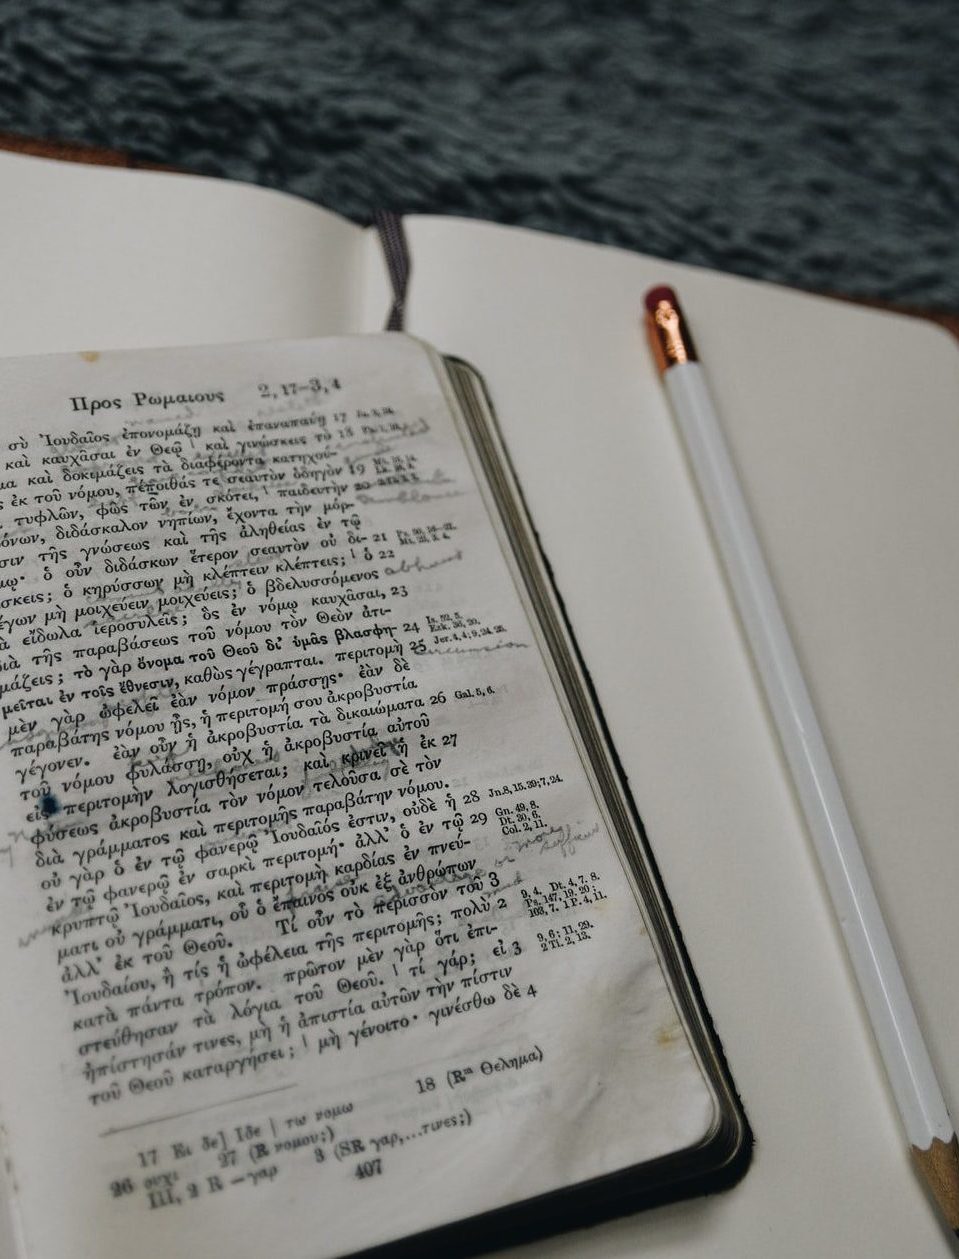 Προς Ρωμαιους 2,17–3,4
σὺ Ἰουδαῖος ἐπονομάζῃ καὶ ἐπαναπαύῃ 17
καὶ καυχᾶσαι ἐν Θεῷ | καὶ γινώσκεις τὸ 18
μα καὶ δοκιμάζεις τὰ διαφέροντα κατηχού-
ς ἐκ τοῦ νόμου, πέποιθάς τε σεαυτὸν ὁδηγὸν 19
τυφλῶν, φῶς τῶν ἐν σκότει, | παιδευτὴν 20
όνων, διδάσκαλον νηπίων, ἔχοντα τὴν μόρ-
σιν τῆς γνώσεως καὶ τῆς ἀληθείας ἐν τῷ
μῳ· ὁ οὖν διδάσκων ἕτερον σεαυτὸν οὐ δι- 21
σκεις; ὁ κηρύσσων μὴ κλέπτειν κλέπτεις; | ὁ 22
έγων μὴ μοιχεύειν μοιχεύεις; ὁ βδελυσσόμενος abhors
ὰ εἴδωλα ἱεροσυλεῖς; ὃς ἐν νόμῳ καυχᾶσαι, 23
διὰ τῆς παραβάσεως τοῦ νόμου τὸν Θεὸν ἀτι-
μάζεις; τὸ γὰρ ὄνομα τοῦ Θεοῦ δι' ὑμᾶς βλασφη- 24 Is. 52, 5. Ezk. 36, 20.
μεῖται ἐν τοῖς ἔθνεσιν, καθὼς γέγραπται. περιτομὴ 25 Jer. 4, 4; 9, 24. 25.
μὲν γὰρ ὠφελεῖ ἐὰν νόμον πράσσῃς· ἐὰν δὲ
παραβάτης νόμου ᾖς, ἡ περιτομή σου ἀκροβυστία
γέγονεν. ἐὰν οὖν ἡ ἀκροβυστία τὰ δικαιώματα 26 Gal. 5, 6.
τοῦ νόμου φυλάσσῃ, οὐχ ἡ ἀκροβυστία αὐτοῦ
εἰς περιτομὴν λογισθήσεται; καὶ κρινεῖ ἡ ἐκ 27
φύσεως ἀκροβυστία τὸν νόμον τελοῦσα σὲ τὸν
διὰ γράμματος καὶ περιτομῆς παραβάτην νόμου.
οὐ γὰρ ὁ ἐν τῷ φανερῷ Ἰουδαῖός ἐστιν, οὐδὲ ἡ 28 Jn. 8, 15. 39; 7, 24.
ἐν τῷ φανερῷ ἐν σαρκὶ περιτομή· ἀλλ' ὁ ἐν τῷ 29 Gn. 49, 8. Dt. 30, 6. Col. 2, 11.
κρυπτῷ Ἰουδαῖος, καὶ περιτομὴ καρδίας ἐν πνεύ-
ματι οὐ γράμματι, οὗ ὁ ἔπαινος οὐκ ἐξ ἀνθρώπων
ἀλλ' ἐκ τοῦ Θεοῦ. Τί οὖν τὸ περισσὸν τοῦ 3
Ἰουδαίου, ἢ τίς ἡ ὠφέλεια τῆς περιτομῆς; πολὺ 2 9, 4. Dt. 4, 7. 8. Ps. 147, 19. 20; 103, 7. 1 P. 4, 11.
κατὰ πάντα τρόπον. πρῶτον μὲν γὰρ ὅτι ἐπι-
στεύθησαν τὰ λόγια τοῦ Θεοῦ. | τί γάρ; εἰ 3 9, 6; 11, 29. 2 Ti. 2, 13.
ἠπίστησάν τινες, μὴ ἡ ἀπιστία αὐτῶν τὴν πίστιν
τοῦ Θεοῦ καταργήσει; | μὴ γένοιτο· γινέσθω δὲ 4
17 Ει δε] Ιδε | τω νομω 18 (Rᵐ Θελημα)
26 ουχι 27 (R νομου;)
III, 2 R —γαρ 3 (SR γαρ,...τινες;)
407